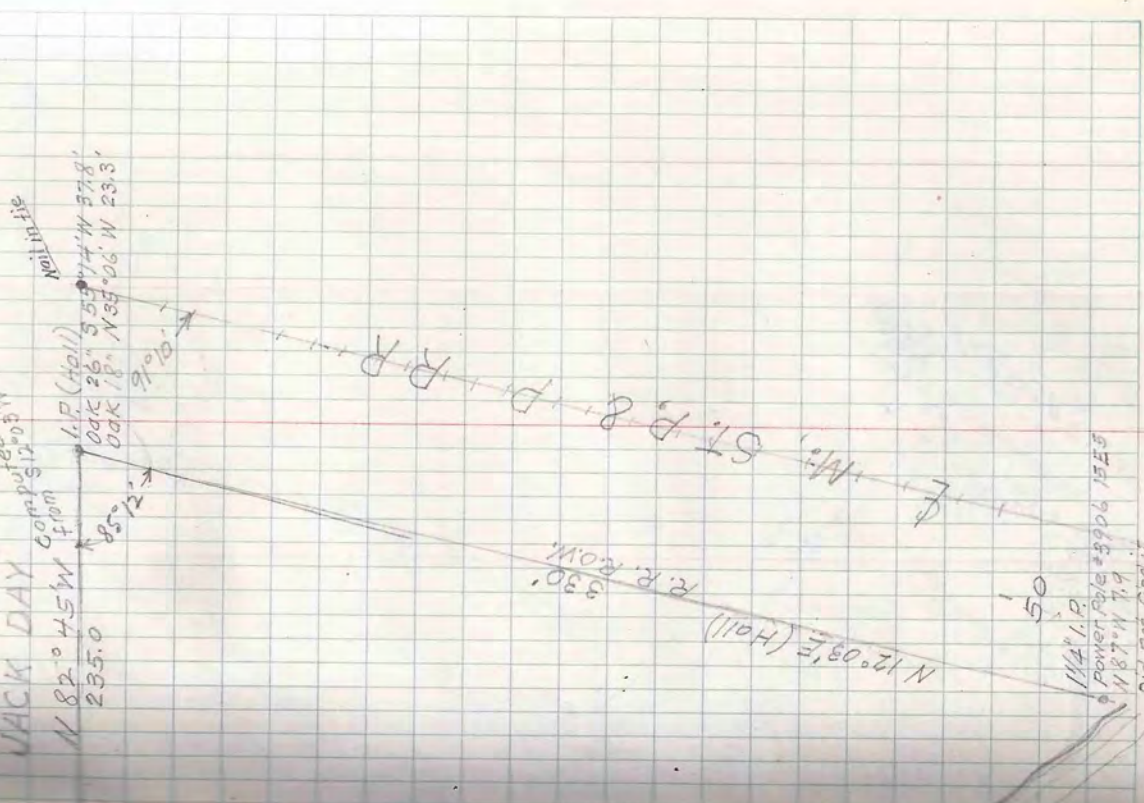 JACK DAY
N 82° 45' W
235.0
computed
from S 12° 03' W
85° 12'
I.P. (Hall)
Oak 26" S 55° 14' W 37.8'
Oak 18" N 35° 06' W 23.3'
Nail in tie
91° 10'
℄ M., St. P., & P R R
330'
R. R. R.O.W.
N 12° 03' E (Hall)
50'
1 1/4" I.P.
Power Pole #3906 15E5
N 87° W 7.9